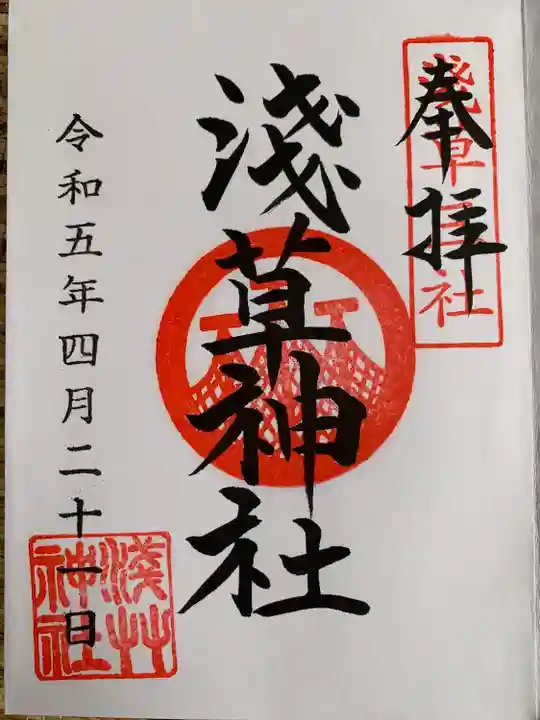 奉拝
淺草三社
淺草神社
令和五年四月二十一日
淺草神社